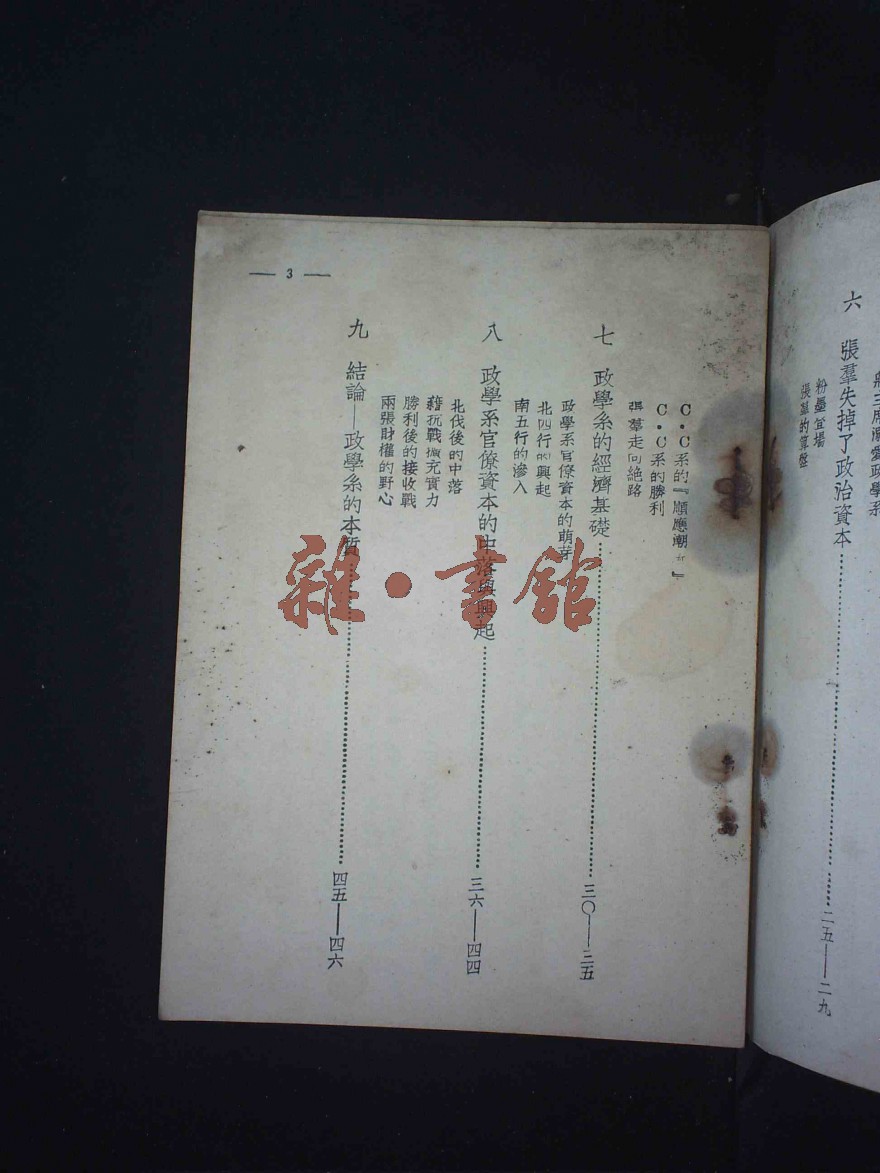 六 張羣失掉了政治資本 二五—二九
粉墨登場
張羣的算盤
— 3 —
C·C系的『順應潮 』
C·C系的勝利
張羣走向絕路
七 政學系的經濟基礎 三〇—三五
政學系官僚資本的萌芽
北四行的興起
南五行的滲入
八 政學系官僚資本的中落與興起 三六—四四
北伐後的中落
藉抗戰擴充實力
勝利後的接收戰
兩張財權的野心
九 結論—政學系的本質 四五—四六
雜·書館